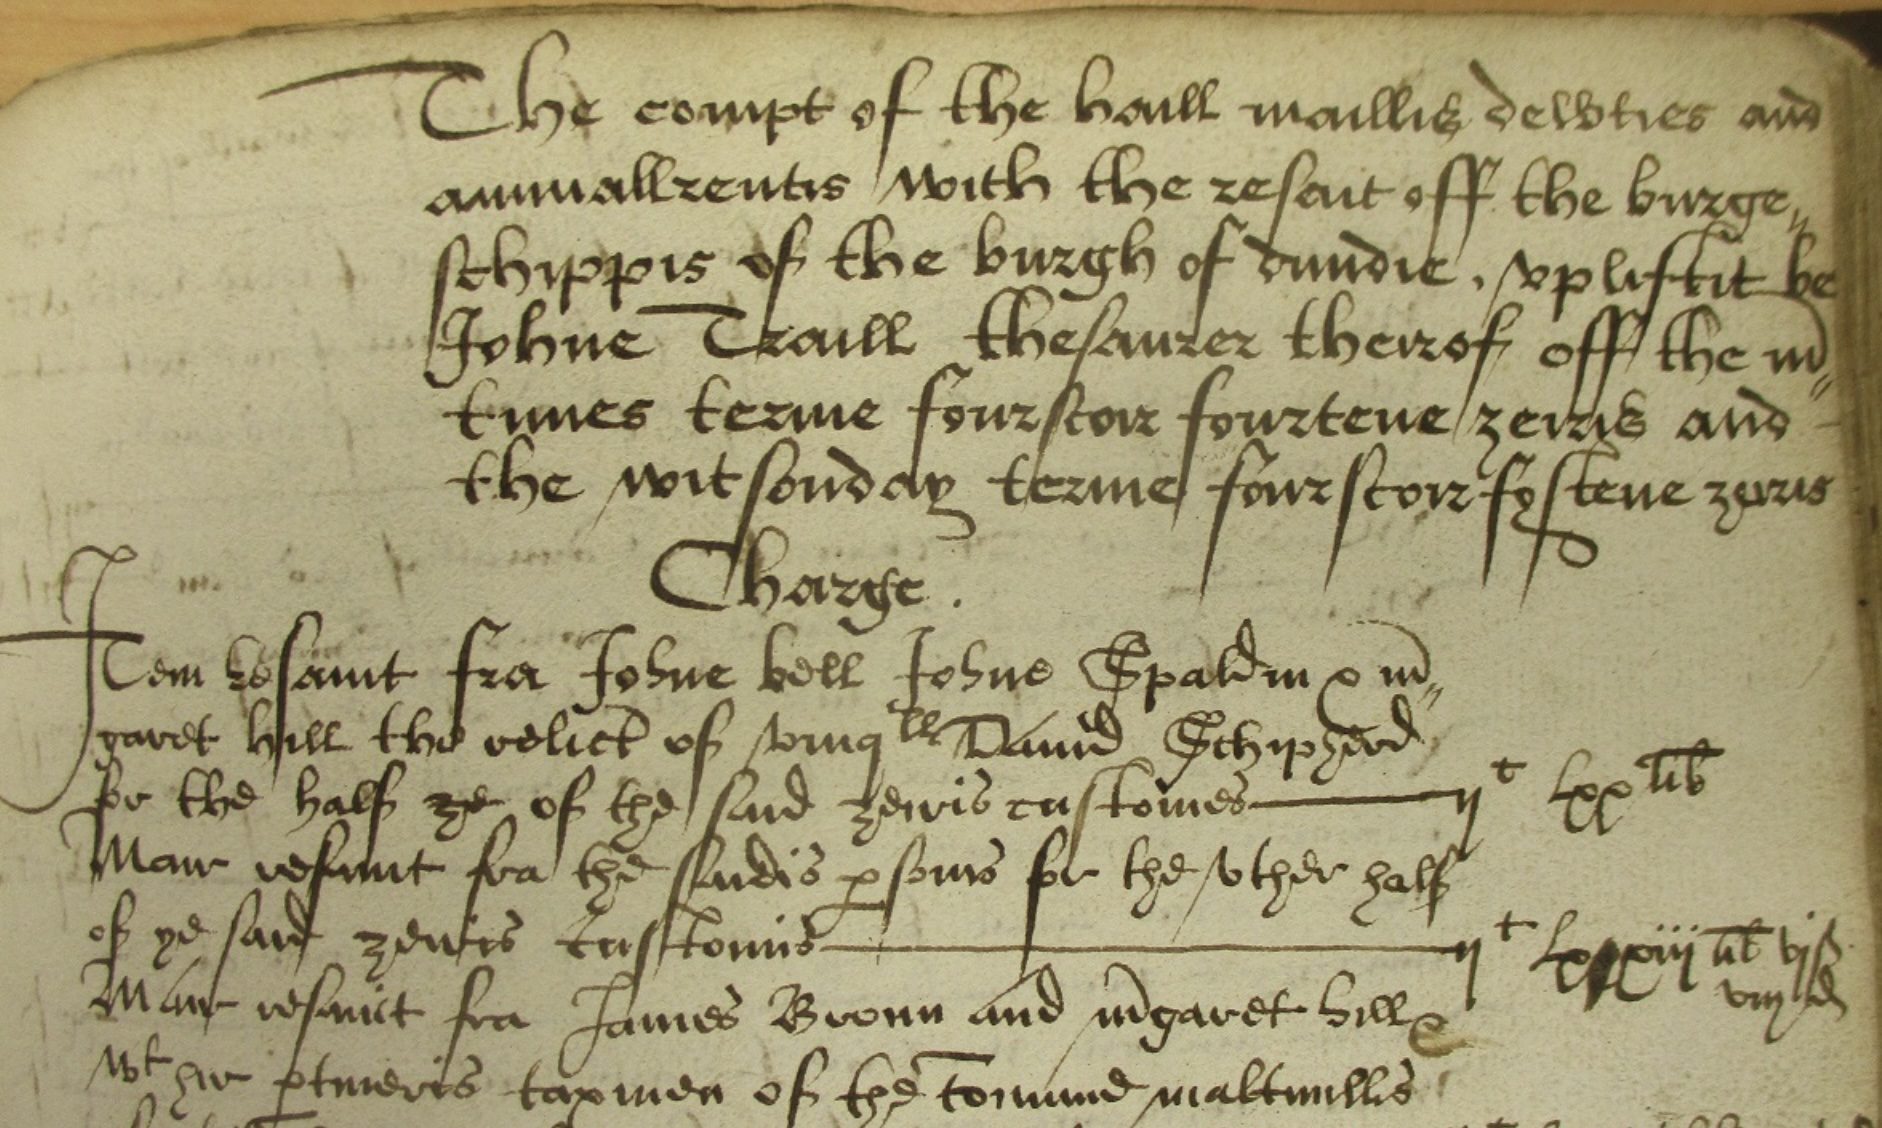 The compt of the haill maillis dewties and
annuallrentis with the resait off the burge„
schippis of the burgh of dundie, vpliftit be
Johne Traill thesaurer theirof off the m̄„
times terme fourscoir fourtene zeiris and
the witsonday terme fourscoir fyftene zeiris
Charge.
Item resauit fra Johne bell Johne Spaldin & m̄„
garet hill the relict of vmqll Dauid Schipherd
for the half ze of the said zeiris customes ijc lxx lib
Mair resauit fra the saidis psonis for the vther half
of ye said zeiris customis ijc lxxxiij lib vjß
viij d
Mair resauit fra James Broun and m̄garet hill &
wt hir ptineris taxmen of the commune maltmillis